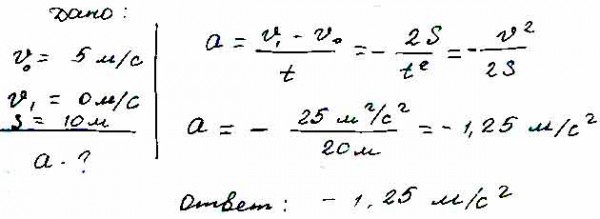 Дано:
v₀ = 5 м/с
v₁ = 0 м/с
S = 10 м
a - ?
a = (v₁ - v₀)/t = - 2S/t² = - v²/2S
a = - 25 м²/с² / 20 м = - 1,25 м/с²
ответ: - 1,25 м/с²